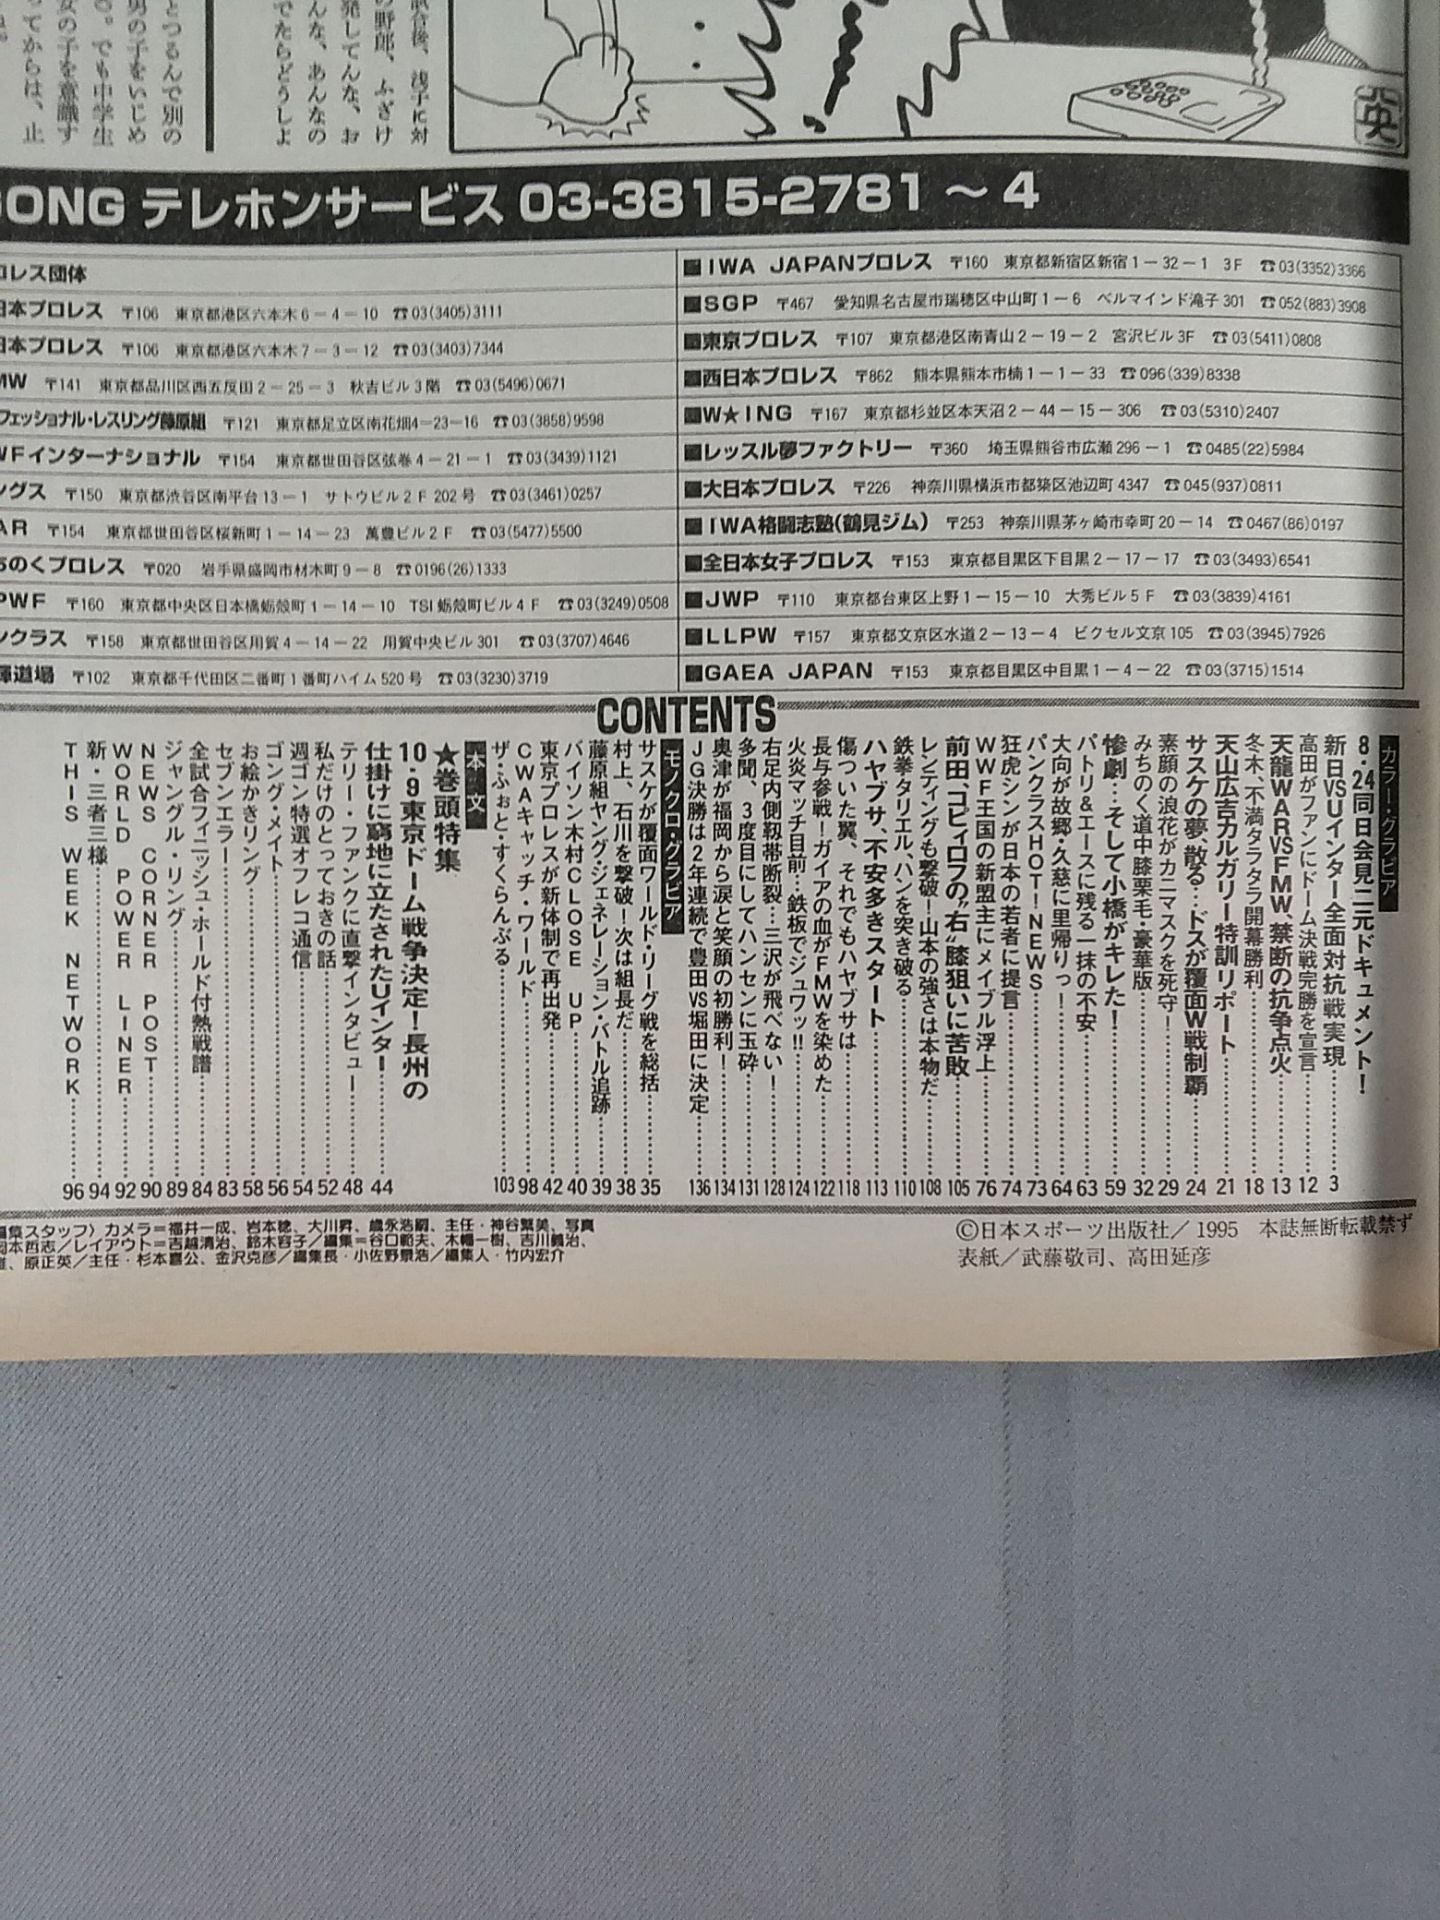 試合後、浅子に対
の野郎、ふざけ
発してんな、お
んな、あんなの
でたらどうしよ
とつるんで別の
男の子をいじめ
。でも中学生
女の子を意識す
ってからは、止
英
GONG テレホンサービス 03-3815-2781～4
ロレス団体
日本プロレス 〒106 東京都港区六本木6-4-10 ☎03(3405)3111
日本プロレス 〒106 東京都港区六本木7-3-12 ☎03(3403)7344
MW 〒141 東京都品川区西五反田2-25-3 秋吉ビル3階 ☎03(5496)0671
フェッショナル・レスリング藤原組 〒121 東京都足立区南花畑4-23-16 ☎03(3858)9598
WFインターナショナル 〒154 東京都世田谷区弦巻4-21-1 ☎03(3439)1121
ングス 〒150 東京都渋谷区南平台13-1 サトウビル2F 202号 ☎03(3461)0257
AR 〒154 東京都世田谷区桜新町1-14-23 萬豊ビル2F ☎03(5477)5500
ちのくプロレス 〒020 岩手県盛岡市材木町9-8 ☎0196(26)1333
PWF 〒160 東京都中央区日本橋蛎殻町1-14-10 TSI蛎殻町ビル4F ☎03(3249)0508
ンクラス 〒158 東京都世田谷区用賀4-14-22 用賀中央ビル301 ☎03(3707)4646
道場 〒102 東京都千代田区二番町1番町ハイム520号 ☎03(3230)3719
■IWA JAPANプロレス 〒160 東京都新宿区新宿1-32-1 3F ☎03(3352)3366
■SGP 〒467 愛知県名古屋市瑞穂区中山町1-6 ベルマインド滝子301 ☎052(883)3908
■東京プロレス 〒107 東京都港区南青山2-19-2 宮沢ビル3F ☎03(5411)0808
■西日本プロレス 〒862 熊本県熊本市楠1-1-33 ☎096(339)8338
■W★ING 〒167 東京都杉並区本天沼2-44-15-306 ☎03(5310)2407
■レッスル夢ファクトリー 〒360 埼玉県熊谷市広瀬296-1 ☎0485(22)5984
■大日本プロレス 〒226 神奈川県横浜市都築区池辺町4347 ☎045(937)0811
■IWA格闘志塾(鶴見ジム) 〒253 神奈川県茅ヶ崎市幸町20-14 ☎0467(86)0197
■全日本女子プロレス 〒153 東京都目黒区下目黒2-17-17 ☎03(3493)6541
■JWP 〒110 東京都台東区上野1-15-10 大秀ビル5F ☎03(3839)4161
■LLPW 〒157 東京都文京区水道2-13-4 ビクセル文京105 ☎03(3945)7926
■GAEA JAPAN 〒153 東京都目黒区中目黒1-4-22 ☎03(3715)1514
CONTENTS
カラー・グラビア
8・24同日会見二元ドキュメント!
新日VSUインター全面対抗戦実現……3
高田がファンにドーム決戦完勝を宣言……12
天龍WARVSFMW、禁断の抗争点火……13
冬木、不満タラタラ開幕勝利……18
天山広吉カルガリー特訓リポート……21
サスケの夢、散る…ドスが覆面W戦制覇……24
素顔の浪花がカニマスクを死守!……29
みちのく道中膝栗毛・豪華版……32
惨劇…そして小橋がキレた!……59
パトリ&エースに残る一抹の不安……63
大向が故郷・久慈に里帰りっ!……64
パンクラスHOT!NEWS……73
狂虎シンが日本の若者に提言……74
WWF王国の新盟主にメイブル浮上……76
前田、コピィロフの“右”膝狙いに苦敗……105
レンティングも撃破!山本の強さは本物だ……108
鉄拳タリエル、ハンを突き破る……110
ハヤブサ、不安多きスタート……113
傷ついた翼、それでもハヤブサは……118
長与参戦!ガイアの血がFMWを染めた……122
火炎マッチ目前…鉄板でジュワッ!!……124
右足内側靱帯断裂…三沢が飛べない!……128
多聞、3度目にしてハンセンに玉砕……131
奥津が福岡から涙と笑顔の初勝利!……134
JG決勝は2年連続で豊田VS堀田に決定……136
モノクロ・グラビア
サスケが覆面ワールド・リーグ戦を総括……35
村上、石川を撃破!次は組長だ……38
藤原組ヤング・ジェネレーション・バトル追跡……39
バイソン木村CLOSE UP……40
東京プロレスが新体制で再出発……42
CWAキャッチ・ワールド……98
ザ・ふぉと・すくらんぶる……103
本文
★巻頭特集
10・9東京ドーム戦争決定!長州の
仕掛けに窮地に立たされたUインター……44
テリー・ファンクに直撃インタビュー……48
私だけのとっておきの話……52
週ゴン特選オフレコ通信……54
ゴング・メイト……56
お絵かきリング……58
セブンエラー……83
全試合フィニッシュ・ホールド付熱戦譜……84
ジャングル・リング……89
NEWS CORNER POST……90
WORLD POWER LINER……92
新・三者三様……94
THIS WEEK NETWORK……96
編集スタッフ〉カメラ=福井一成、岩本稔、大川昇、歳永浩嗣、主任・神谷繁美、写真
岡本哲志/レイアウト=吉越清治、鈴木容子/編集=谷口範夫、木幡一樹、吉川義治、
、原正英/主任・杉本喜公、金沢克彦/編集長・小佐野景浩/編集人・竹内宏介
©日本スポーツ出版社/1995 本誌無断転載禁ず
表紙/武藤敬司、高田延彦